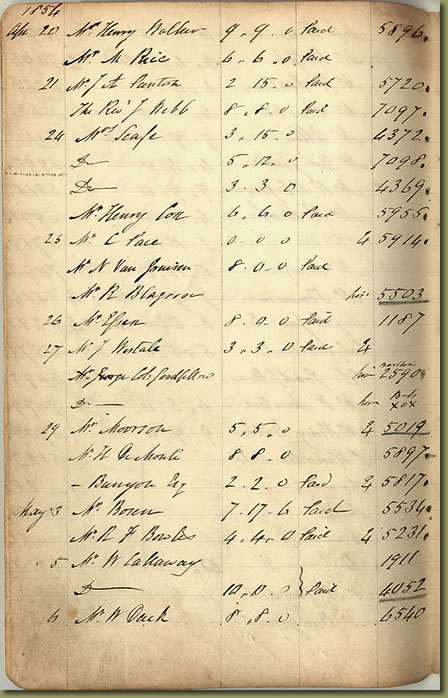 1854
Apr 20 Mr Henry Walker 9 . 9 . 0 Paid 5896.
Mr M Price 6 . 6 . 0 Paid
21 Mr J A 2 15 . 0 Paid 5720.
The Revd J Webb 8 . 8 . 0 Paid 7097.
24 Mr Scafe 3 . 15 . 0 4372.
Do 5 . 12 . 0 7098.
Do 3 . 3 0 4369.
Mr Henry Cox 6 . 6 . 0 Paid 5955.
25 Mr C Pace 0 . 0 . 0 5914.
Mr N Van 8 . 0 . 0 Paid
Mr R Blagrove 5503
26 Mr 8 . 0 . 0 Paid 1187
27 Mr J Westale 3 . 3 . 0 Paid
Col: 2590
Do
29 Mr Moorson 5 . 5 . 0 5019
Mr H De Monti 8 8 . 0 5897.
- Bunyon Esq 2 . 2 . 0 Paid 5817.
May 3 Mr Bowen 7 - 17 . 6 Paid 5534.
Mr R F Bowles 4 . 4 . 0 Paid 5231.
5 Mr W Callaway 1911
Do 10 . 10 . 0 } Paid 4052
6 Mr W Duck 8 . 8 . 0 6540